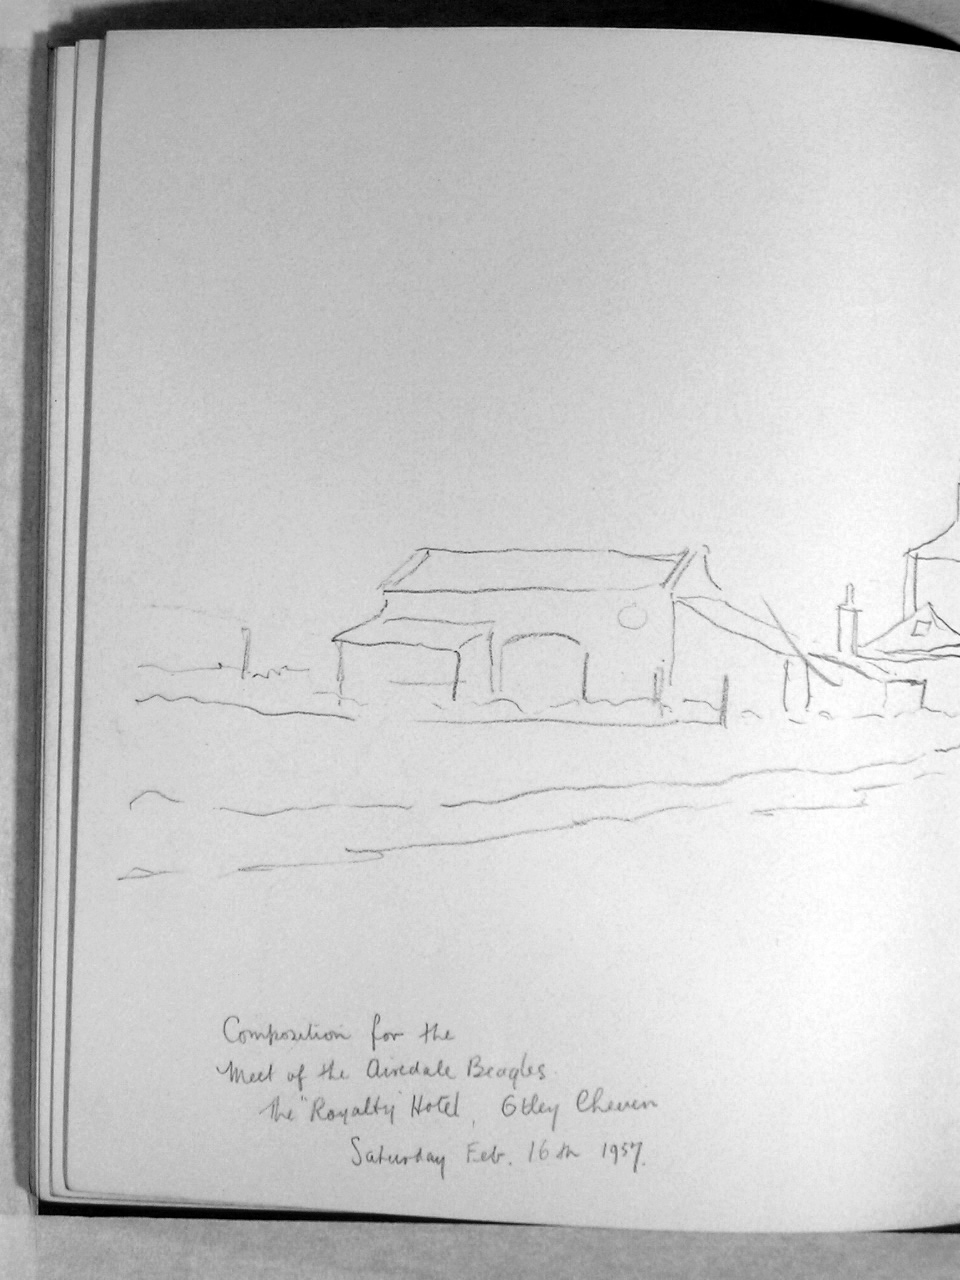 Composition for the
Meet of the Airedale Beagles.
The "Royalty" Hotel, Otley Cheven
Saturday Feb. 16th 1957.